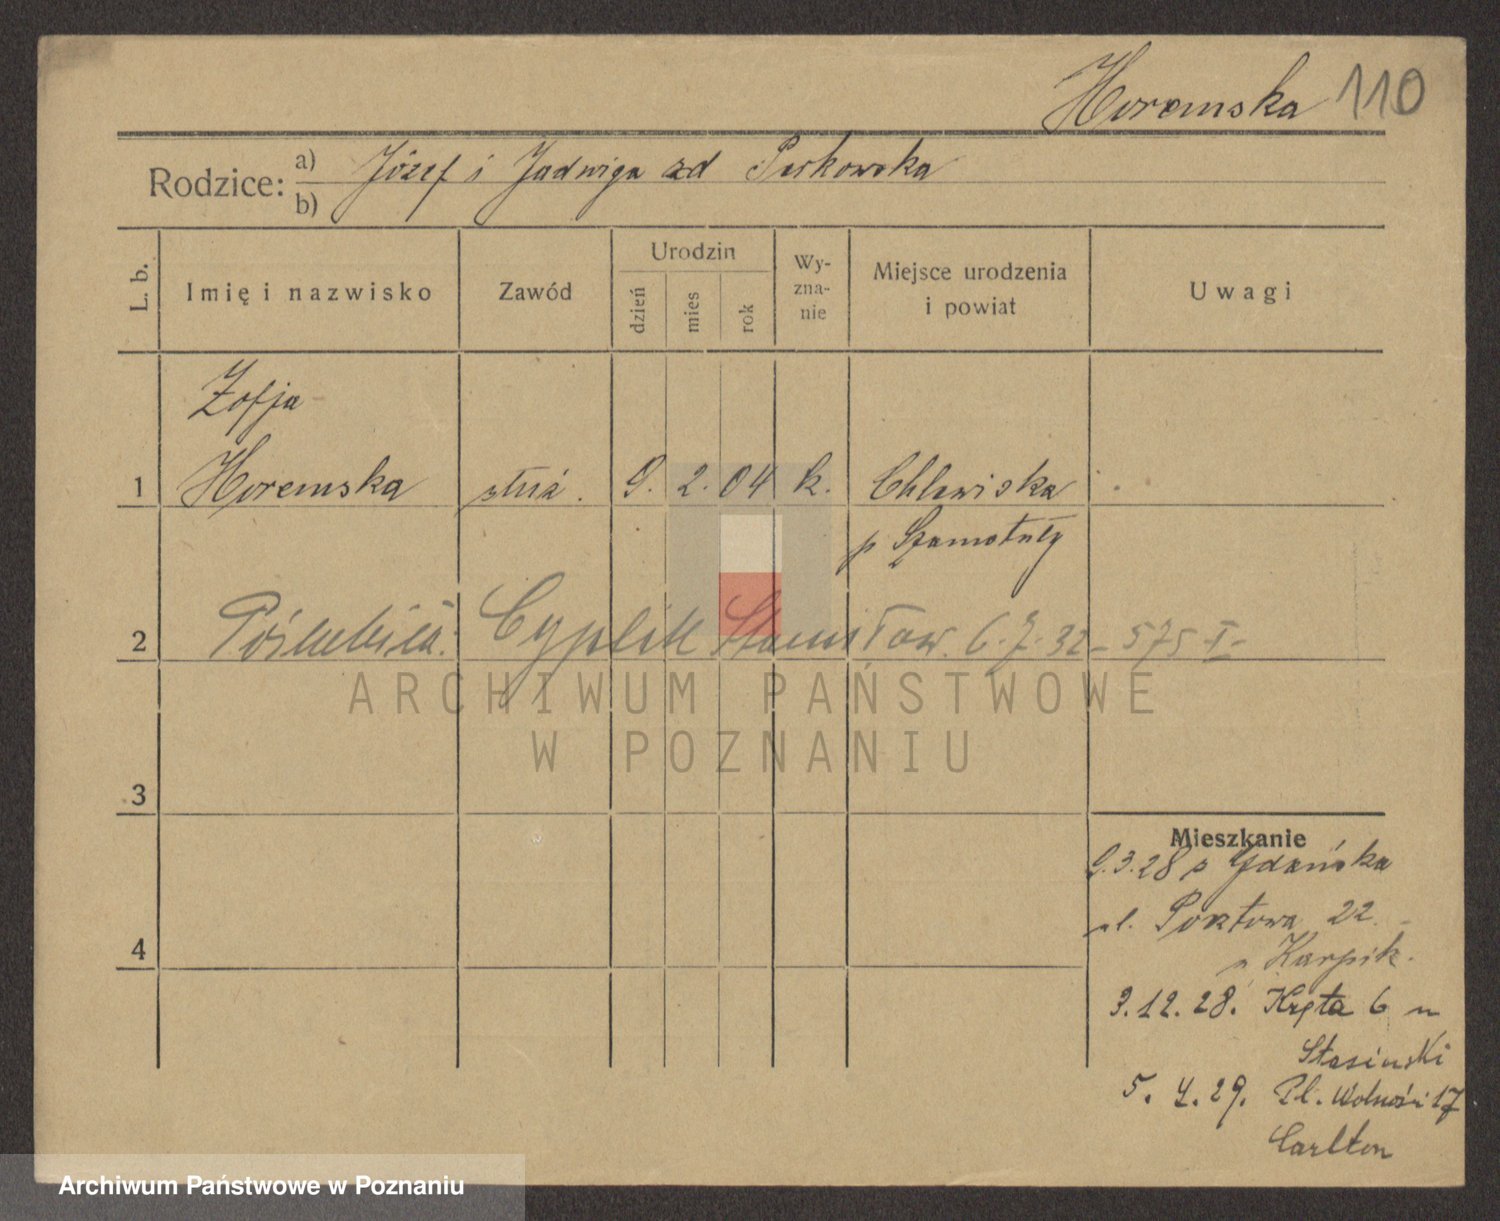 Horemska 110
Rodzice: a) Józef i Jadwiga zd Perkowska
b)
L. b.
Imię i nazwisko
Zawód
Urodzin
dzień
mies
rok
Wy-
zna-
nie
Miejsce urodzenia
i powiat
Uwagi
Zofja
1 Horemska służ. 9. 2. 04 k. Chlewiska
p Szamotuły
2 Poślubiła: Cyplik Stanisław. 6.7.32 - 575 I-
ARCHIWUM PAŃSTWOWE
W POZNANIU
3
4
Mieszkanie
9.3.28 z Gdańska
ul. 22.
Karpik.
3.12.28. Kręta 6 u
Stasiński
5. 4. 29. Pl. Wolności 17
Carlton
Archiwum Państwowe w Poznaniu